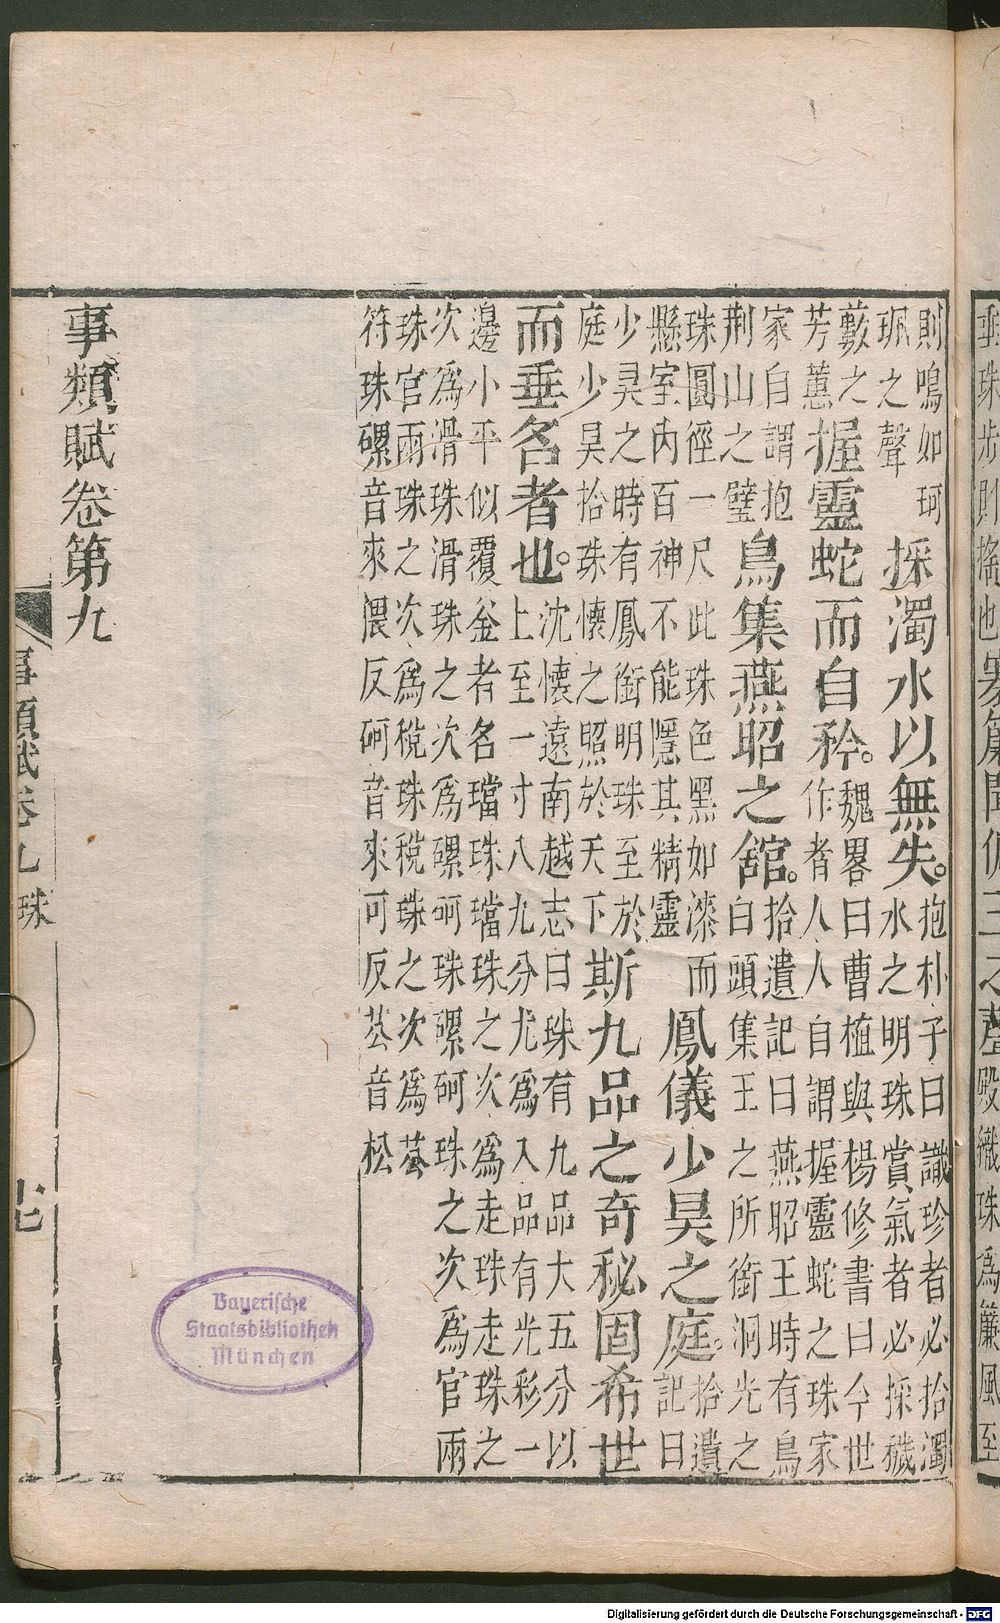 垂珠步則搖也寒簾聞似玉之聲殿織珠爲簾風至
則鳴如珂
珮之聲
採濁水以無失。
抱朴子曰識珍者必拾濁
水之明珠賞氣者必採穢
藪之
芳蕙
握靈蛇而自矜。
魏畧曰曹植與楊修書曰今世
作者人人自謂握靈蛇之珠家
家自謂抱
荆山之璧
鳥集燕昭之舘。
拾遺記曰燕昭王時有鳥
白頭集王之所銜洞光之
珠圓徑一尺此珠色黑如漆而
懸室內百神不能隱其精靈
鳳儀少昊之庭。
拾遺
記曰
少昊之時有鳳銜明珠至於
庭少昊拾珠懷之照於天下
斯九品之奇秘固希世
而垂名者也。
沈懷遠南越志曰珠有九品大五分以
上至一寸八九分尤爲入品有光彩一
邊小平似覆釜者名璫珠璫珠之次爲走珠走珠之
次爲滑珠滑珠之次爲磥砢珠磥砢珠之次爲官雨
珠官雨珠之次爲稅珠稅珠之次爲䓗
符珠磥音來隈反砢音來可反䓗音松
事類賦卷第九
事類賦卷九 珠 十七
Bayerische
Staatsbibliothek
München
Digitalisierung gefördert durch die Deutsche Forschungsgemeinschaft - DFG